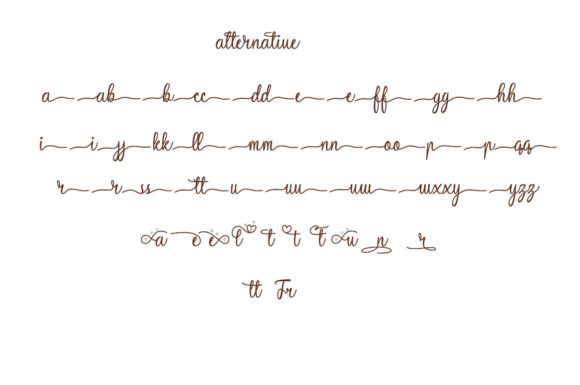 alternative
a ab b cc dd e e ff gg hh
i i y kk ll mm nn oo p p qq
r r ss tt u uu uw wxxy yzz
a e e l t t t u n r
tt Fr